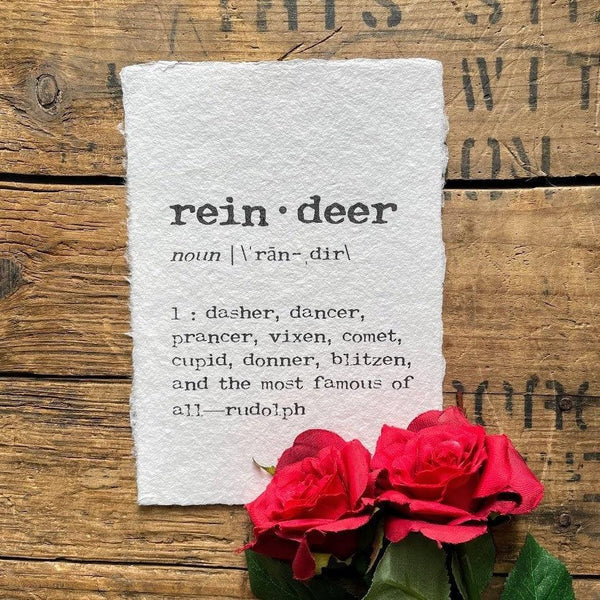 WIT
ON
rein·deer
noun |\ˈrān-ˌdir\
1 : dasher, dancer,
prancer, vixen, comet,
cupid, donner, blitzen,
and the most famous of
all—rudolph